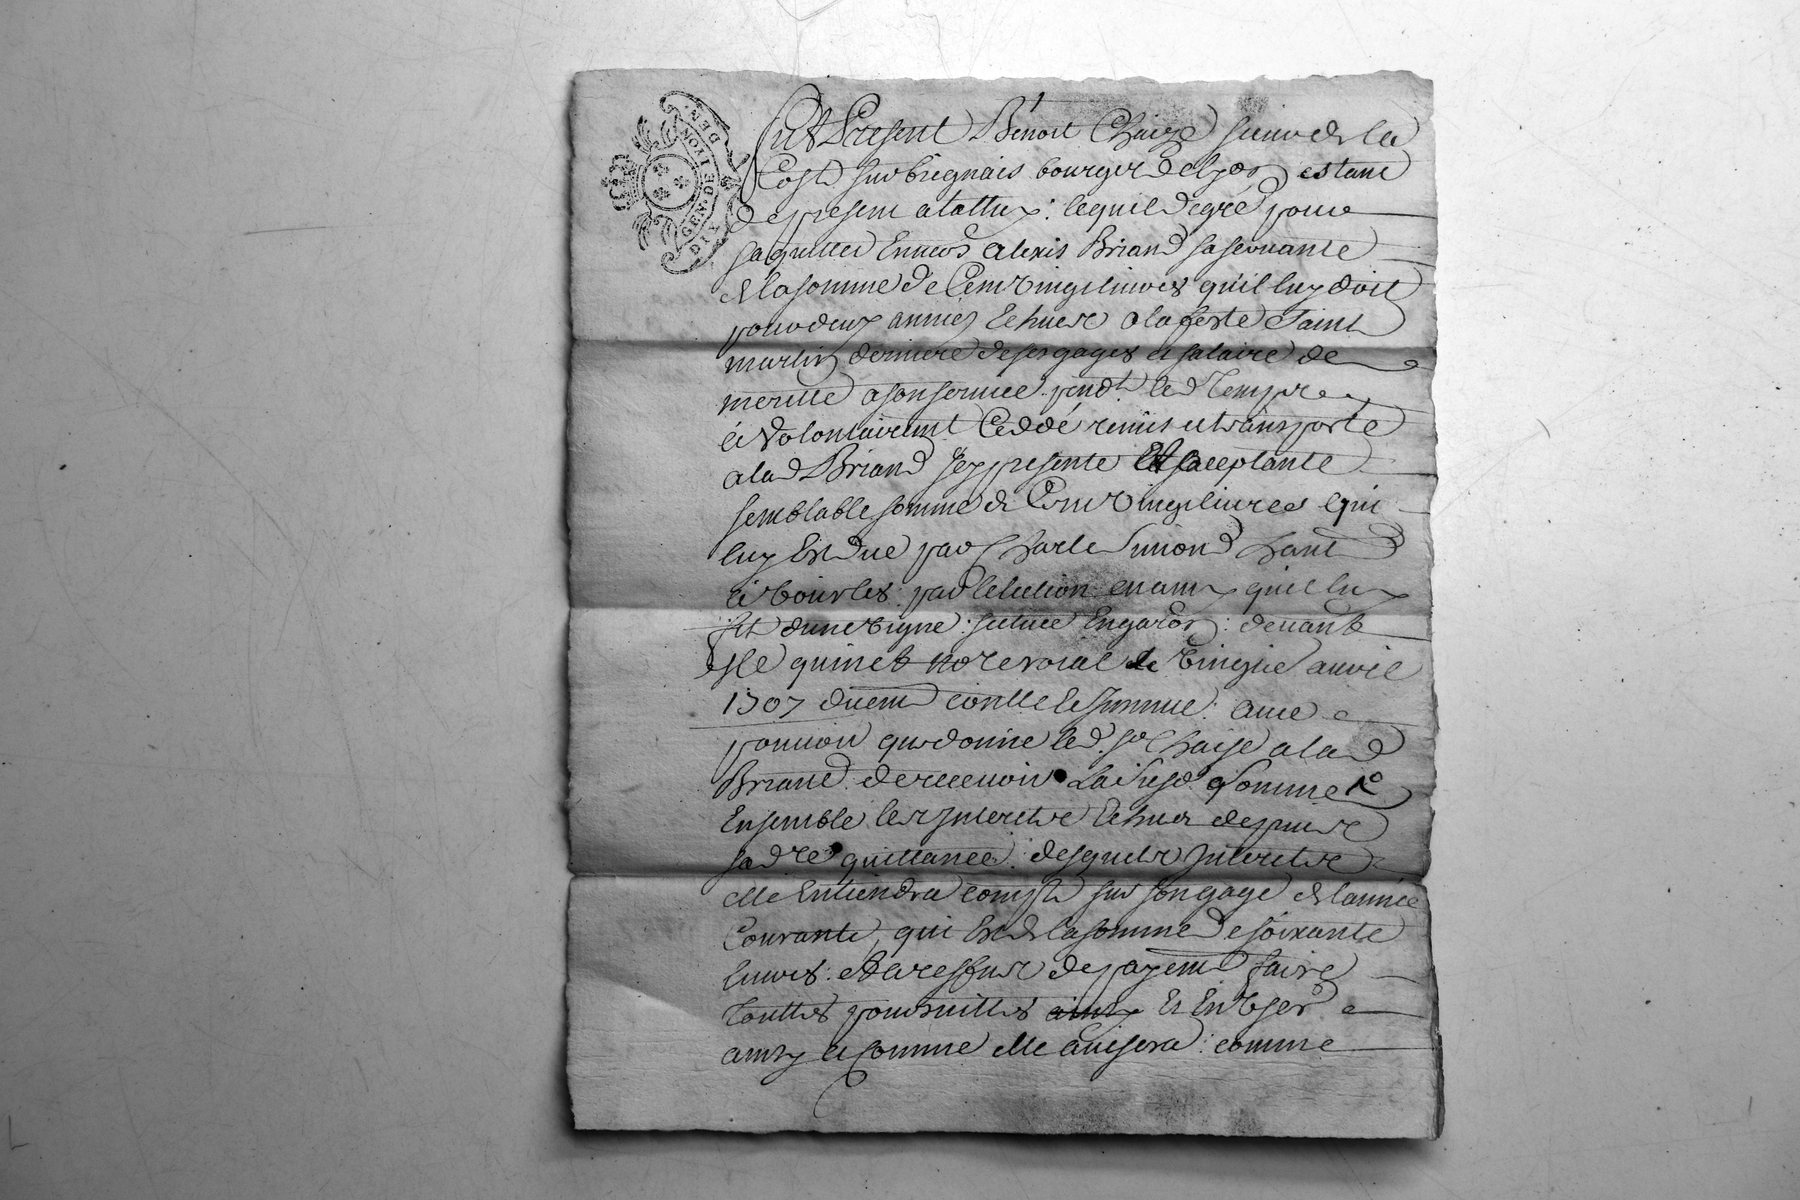 GEN. DE LYON. DIX DEN.
Fut Present Benoit Chaize sieur de la
Coste sur brignais bourgeois de Lyon estant
de present a tallux : lequel de gré pour
saquitter envers alexis Briand sa servante
de la somme de Cent vingt livres qu'il luy doit
pour deux années echues a la feste Saint
martin derniere de ses gages et salaire de
merité a son service pendt led temps
à volontairemt Ceddé remis et transporté
a lad Briand icy presente et acceptante
semblable somme de Cent vingt livres qui
luy est due par Charle Simond
par
fit d'une vigne située : devant
quinet no.re royal le vingt avril
1707 duemt conllé : avec
pouvoir que donne led. sr Chaize a lad
Briand de recevoir La susd. Somme
Ensemble les Interets echus depuis
sad. quittance desquels Interets
elle en tiendra compte sur son gage de l'année
Courante, qui est de la somme de soixante
livres : et de refus de payemt faire
touttes poursuittes et en user
ainsy et comme elle avisera : comme